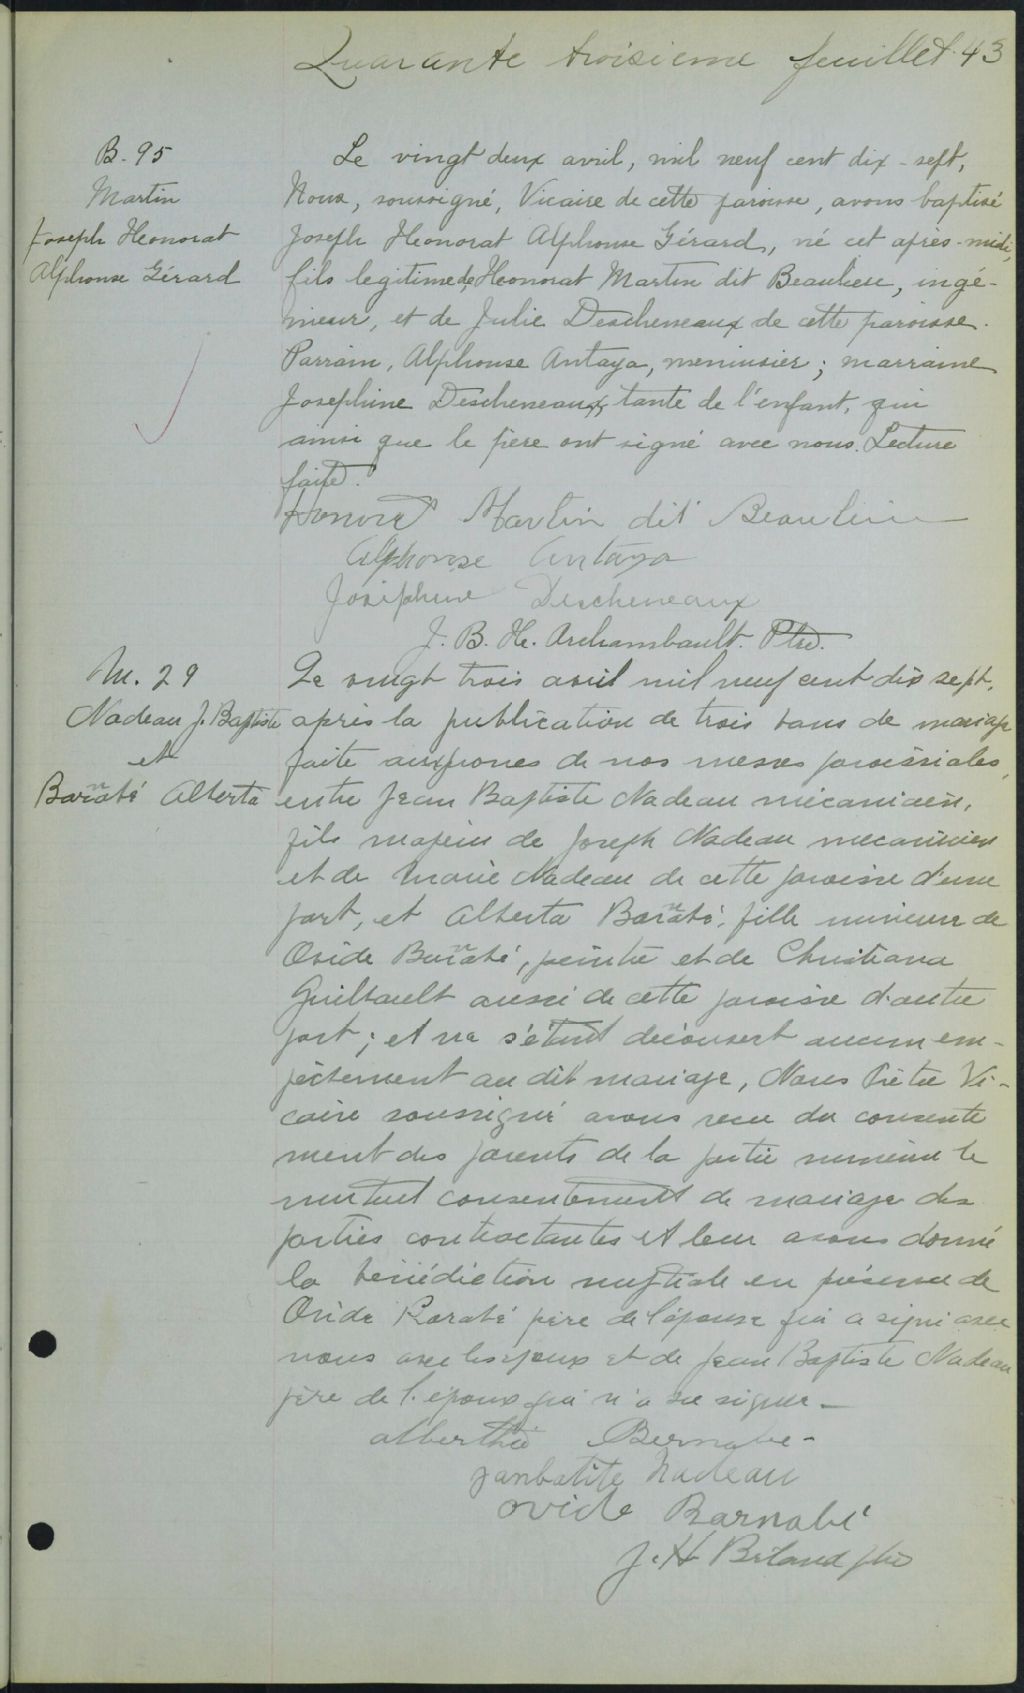 Quarante troisieme feuillet. 43
B. 95
Martin
Joseph Honorat
Alphonse Gérard
Le vingt deux avril, mil neuf cent dix-sept,
Nous, soussigné, Vicaire de cette paroisse, avons baptisé
Joseph Honorat Alphonse Gérard, né cet après-midi,
fils legitime de Honorat Martin dit Beaulieu, ingé-
nieur, et de Julie Descheneaux de cette paroisse.
Parrain, Alphonse Antaya, menuisier; marraine
Josephine Descheneaux, tante de l'enfant, qui
ainsi que le père ont signé avec nous. Lecture
faite.
Honoré Martin dit Beaulieu
Alphonse Antaya
Josephine Descheneaux
J. B. H. Archambault. Ptre.
M. 29
Nadeau J. Baptiste
et
Barnabé Alberta
Le vingt trois avril mil neuf cent dix sept,
après la publication de trois bans de mariage
faite aux prones de nos messes paroissiales,
entre Jean Baptiste Nadeau mécanicien,
fils majeur de Joseph Nadeau mecanicien
et de Marie Nadeau de cette paroisse d'une
part, et Alberta Barnabé, fille mineure de
Ovide Barnabé, peintre et de Christiana
Guilbault aussi de cette paroisse d'autre
part; et ne s'étant découvert aucun em-
pêchement au dit mariage, Nous Prêtre Vi-
caire soussigné avons recu du consente
ment des parents de la partie mineure le
mutuel consentement de mariage des
parties contractantes et leur avons donné
la bénédiction nuptiale en présence de
Ovide Barabé père de l'épouse qui a signé avec
nous avec les époux et de Jean Baptiste Nadeau
père de l'époux qui n'a su signer.
Bernabe
janbatite Nadeau
ovide Barnabé
J. H. ptre